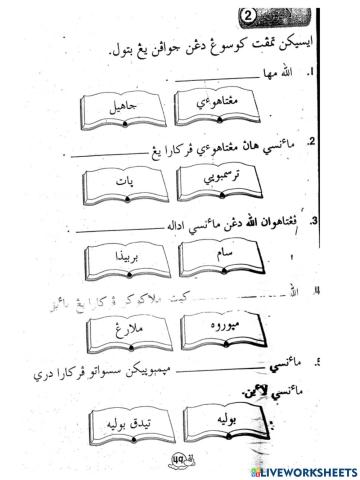 2
ايسيكن تمڤت كوسوڠ دڠن جواڤن يڠ بتول.
1. الله مها ________.
مڠتاهوءي
جاهيل
2. مأنسي هاڽ مڠتاهوءي ڤركارا يڠ ________.
ترسمبوڽي
ڽات
3. ڤڠتاهوان الله دڠن مأنسي اداله ________.
سام
بربيذا
4. الله ________ كيت ملاكوكن ڤركارا يڠ
مڽوروه
ملارڠ
5. مأنسي ________ مڽمبوڽيكن سسواتو ڤركارا دري
مأنسي لأين.
بوليه
تيدق بوليه
٤٩
LIVEWORKSHEETS